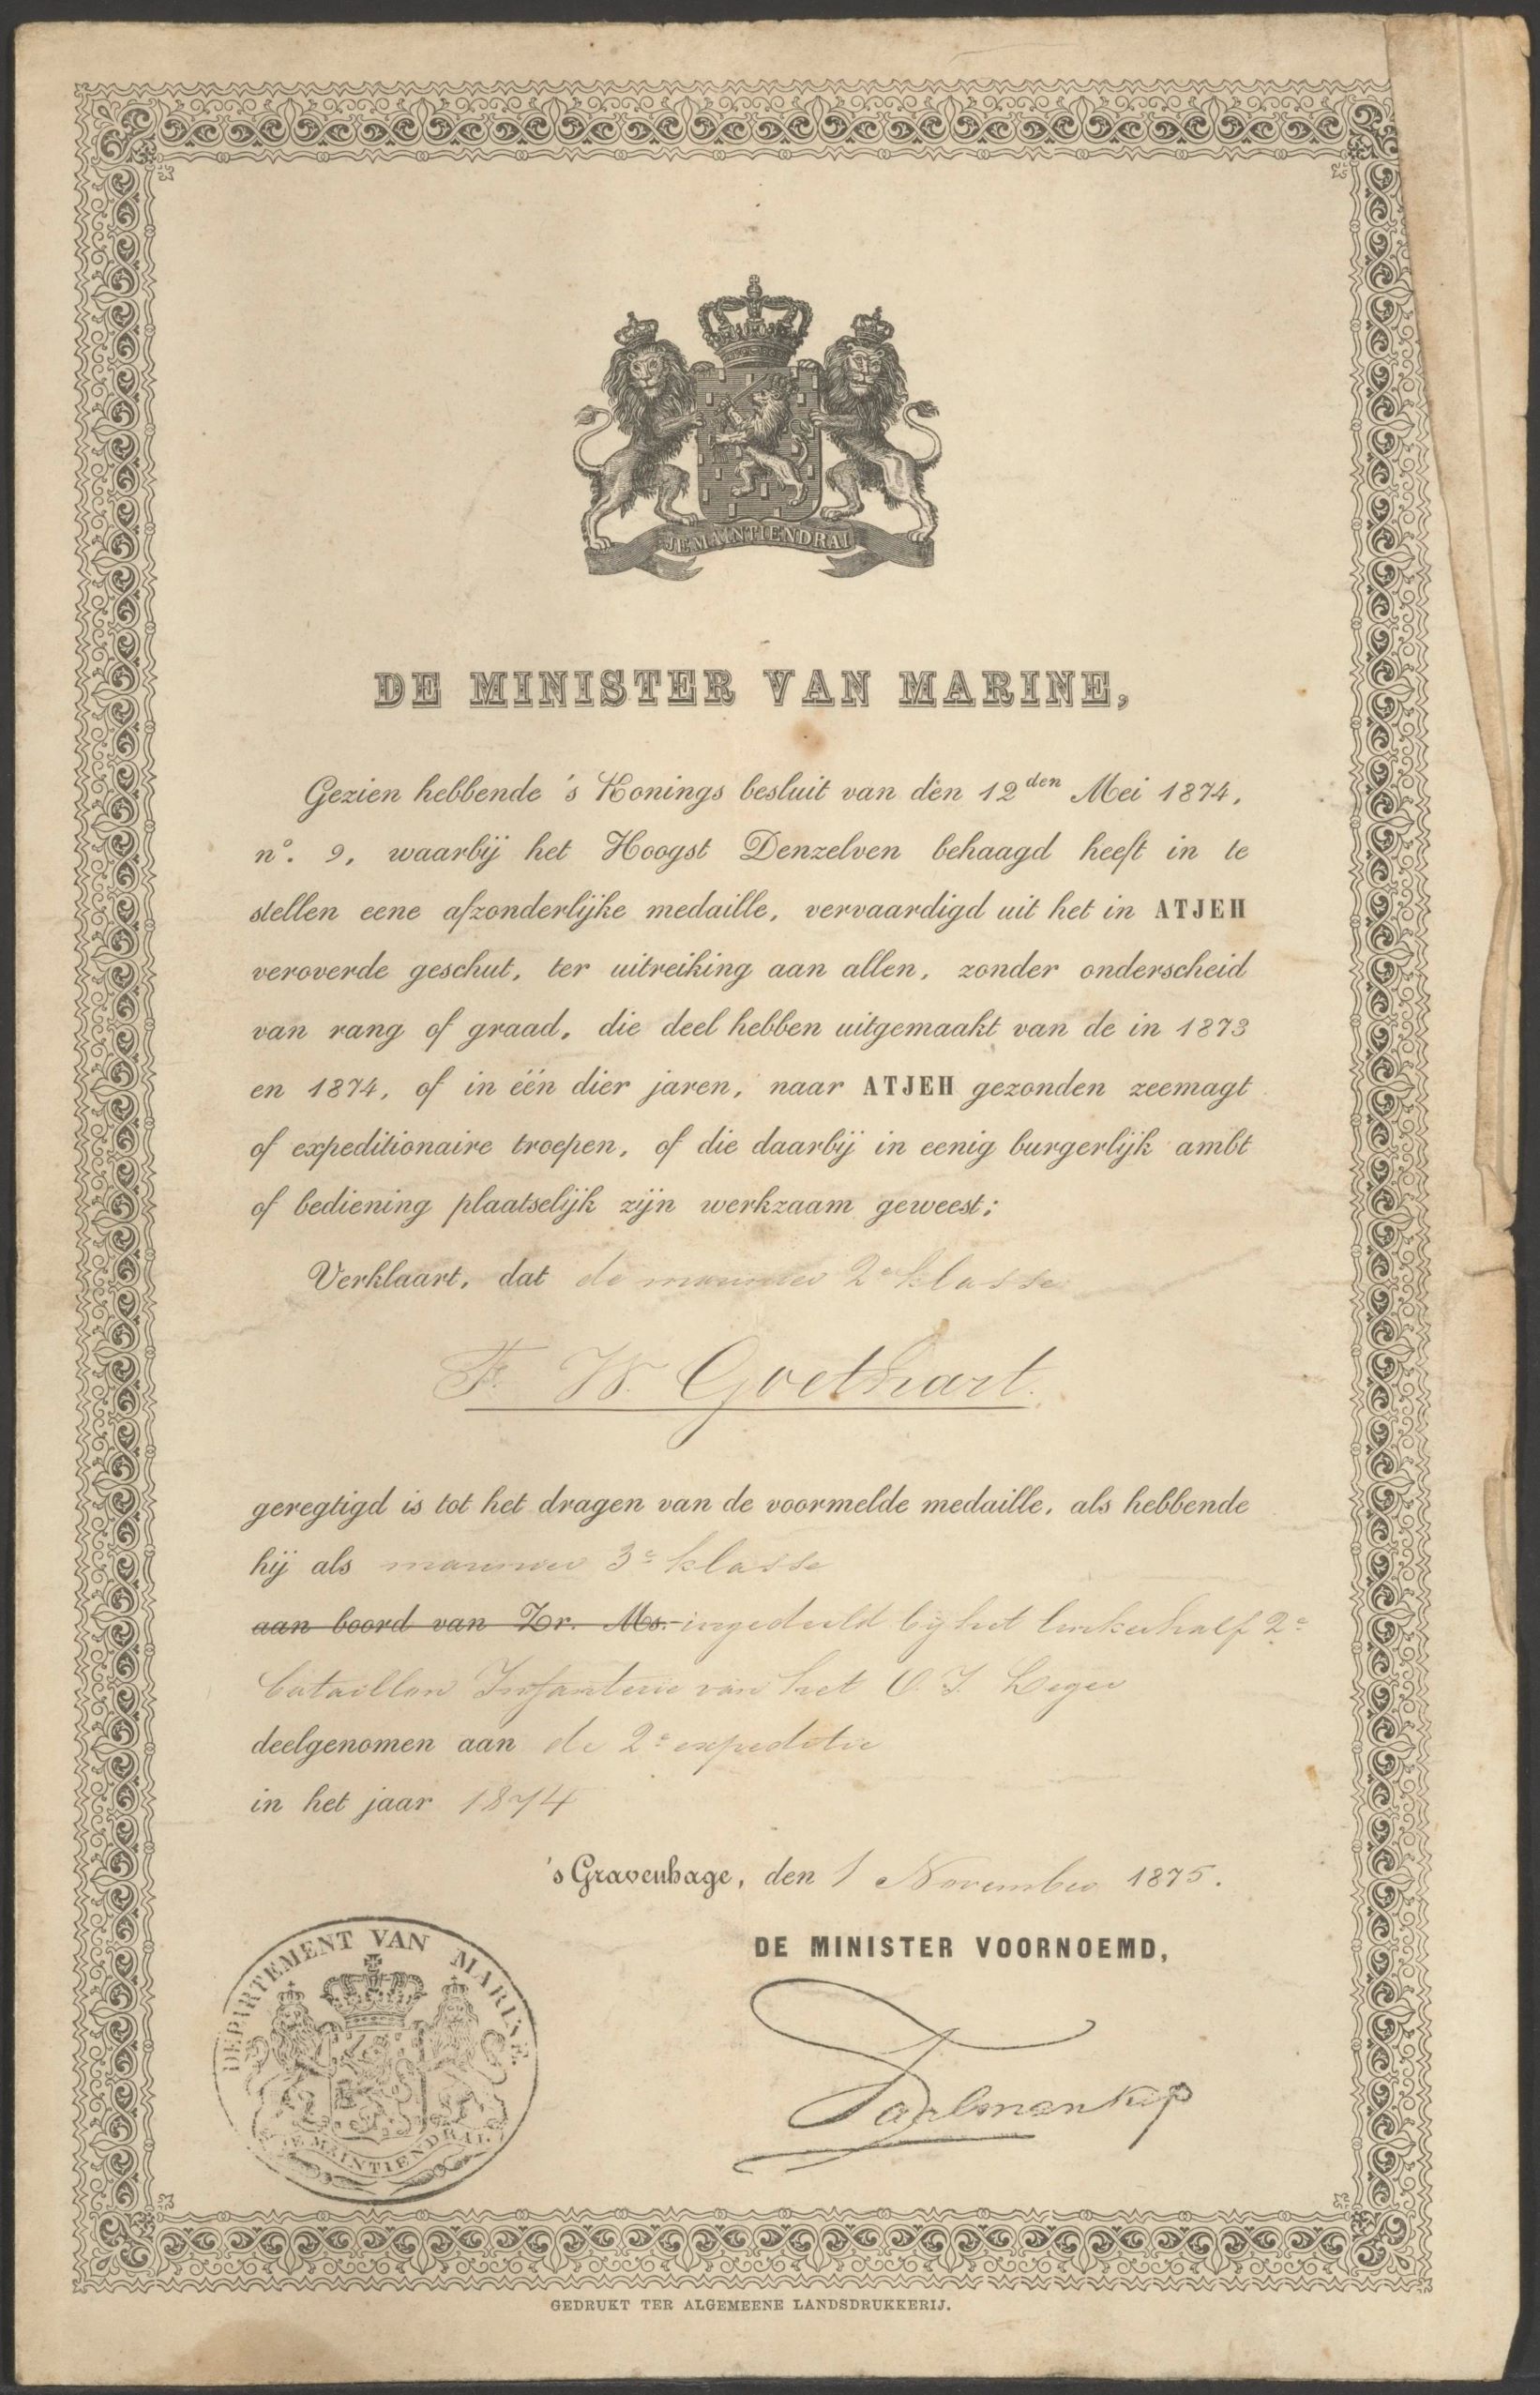 JE MAINTIENDRAI
DE MINISTER VAN MARINE,
Gezien hebbende 's Konings besluit van den 12den Mei 1874,
no. 9, waarbij het Hoogst Denzelven behaagd heeft in te
stellen eene afzonderlijke medaille, vervaardigd uit het in ATJEH
veroverde geschut, ter uitreiking aan allen, zonder onderscheid
van rang of graad, die deel hebben uitgemaakt van de in 1873
en 1874, of in één dier jaren, naar ATJEH gezonden zeemagt
of expeditionaire troepen, of die daarbij in eenig burgerlijk ambt
of bediening plaatselijk zijn werkzaam geweest;
Verklaart, dat de marinier 2e klasse
F. W. Goethart.
geregtigd is tot het dragen van de voormelde medaille, als hebbende
hij als marinier 3e klasse
aan boord van Zr. Ms. ingedeeld bij het linkerhalf 2e
bataillon Infanterie van het O. I. Leger
deelgenomen aan de 2e expeditie
in het jaar 1874
's Gravenhage, den 1 November 1875.
DE MINISTER VOORNOEMD,
Taalman Kip
DEPARTEMENT VAN MARINE.
JE MAINTIENDRAI.
GEDRUKT TER ALGEMEENE LANDSDRUKKERIJ.